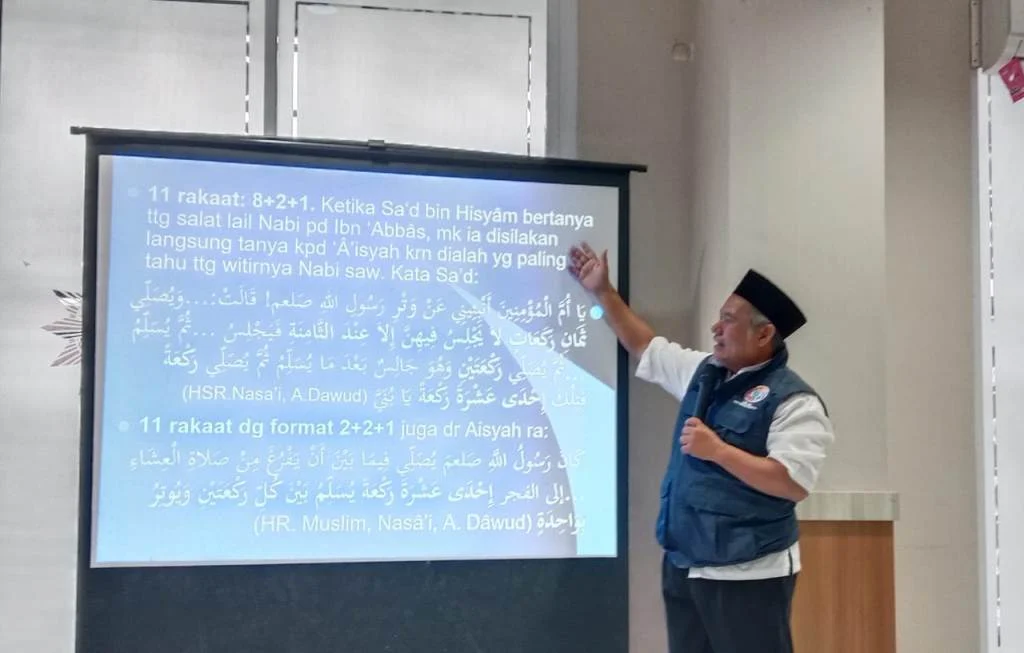 11 rakaat: 8+2+1. Ketika Sa'd bin Hisyâm bertanya
ttg salat lail Nabi pd Ibn 'Abbâs, mk ia disilakan
langsung tanya kpd 'Â'isyah krn dialah yg paling
tahu ttg witirnya Nabi saw. Kata Sa'd:
يَا أُمَّ الْمُؤْمِنِينَ أَنْبِئِينِي عَنْ وَتْرِ رَسُولِ الله صَلعم! قَالَتْ:...وَيُصَلِّي
ثَمَانِ رَكَعَاتٍ لَا يَجْلِسُ فِيهِنَّ إِلَّا عِنْدَ الثَّامِنَةِ فَيَجْلِسُ ...ثُمَّ يُسَلِّمُ
...ثُمَّ يُصَلِّي رَكْعَتَيْنِ وَهُوَ جَالِسٌ بَعْدَ مَا يُسَلِّمُ ثُمَّ يُصَلِّي رَكْعَةً
فَتِلْكَ إِحْدَى عَشْرَةَ رَكْعَةً يَا بُنَيَّ (HSR.Nasa'i, A.Dawud)
11 rakaat dg format 2+2+1 juga dr Aisyah ra:
كَانَ رَسُولُ اللَّهِ صَلعم يُصَلِّي فِيمَا بَيْنَ أَنْ يَفْرُغَ مِنْ صَلَاةِ الْعِشَاءِ
...إلى الفَجرِ إِحْدَى عَشْرَةَ رَكْعَةً يُسَلِّمُ بَيْنَ كُلِّ رَكْعَتَيْنِ وَيُوتِرُ
بِوَاحِدَةٍ (HR. Muslim, Nasâ'i, A. Dâwud)